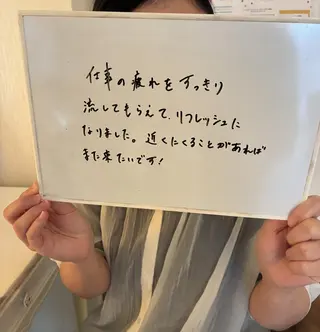 仕事の疲れをすっきり
流してもらえて、リフレッシュに
なりました。近くにくることがあれば
また来たいです!